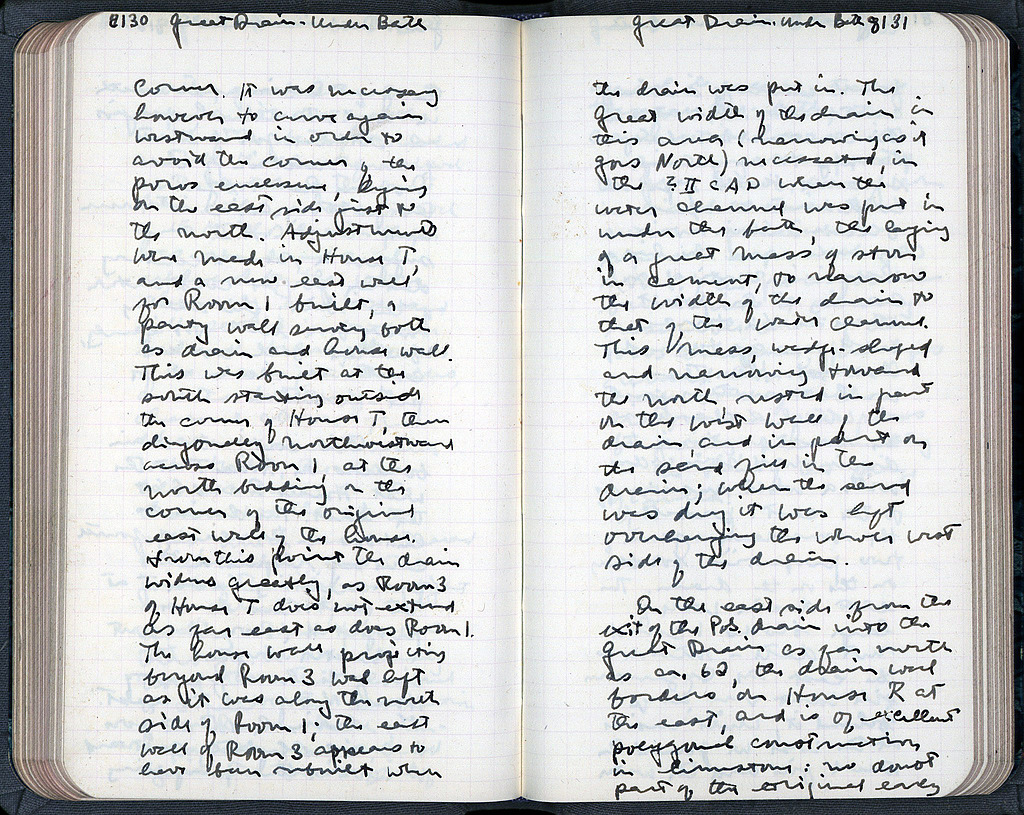 8130 Great Drain. Under Bath
corner. It was necessary
however to curve again
westward in order to
avoid the corner of the
poros enclosure, lying
on the east side just to
the north. Adjustments
were made in House T,
and a new east wall
for Room 1 built, a
party wall serving both
as drain and house wall.
This was built at the
south starting outside
the corner of House T, then
diagonally northwestward
across Room 1, at the
north bedding on the
corner of the original
east wall of the house.
From this point the drain
widens greatly, as Room 3
of House T does not extend
as far east as does Room 1.
The house wall projecting
beyond Room 3 was left
as it was along the north
side of Room 1; the east
wall of Room 3 appears to
have been rebuilt when
Great Drain. Under Bath 8131
the drain was put in. The
great width of the drain in
this area (narrowing as it
goes North) necessitated, in
the ? II C AD when the
water channel was put in
under the bath, the laying
of a great mass of stone
in cement, to narrow
the width of the drain to
that of the water channel.
This mass, wedge-shaped
and narrowing toward
the north, rested in part
on the west wall of the
drain and in part on
the sand fill in the
drain; when the sand
was dug it was left
overhanging the whole west
side of the drain.
On the east side from the
exit of the Pos. drain into the
Great Drain as far north
as ca. 62, the drain wall
borders on House R at
the east, and is of excellent
polygonal construction
in limestone: no doubt
part of the original early